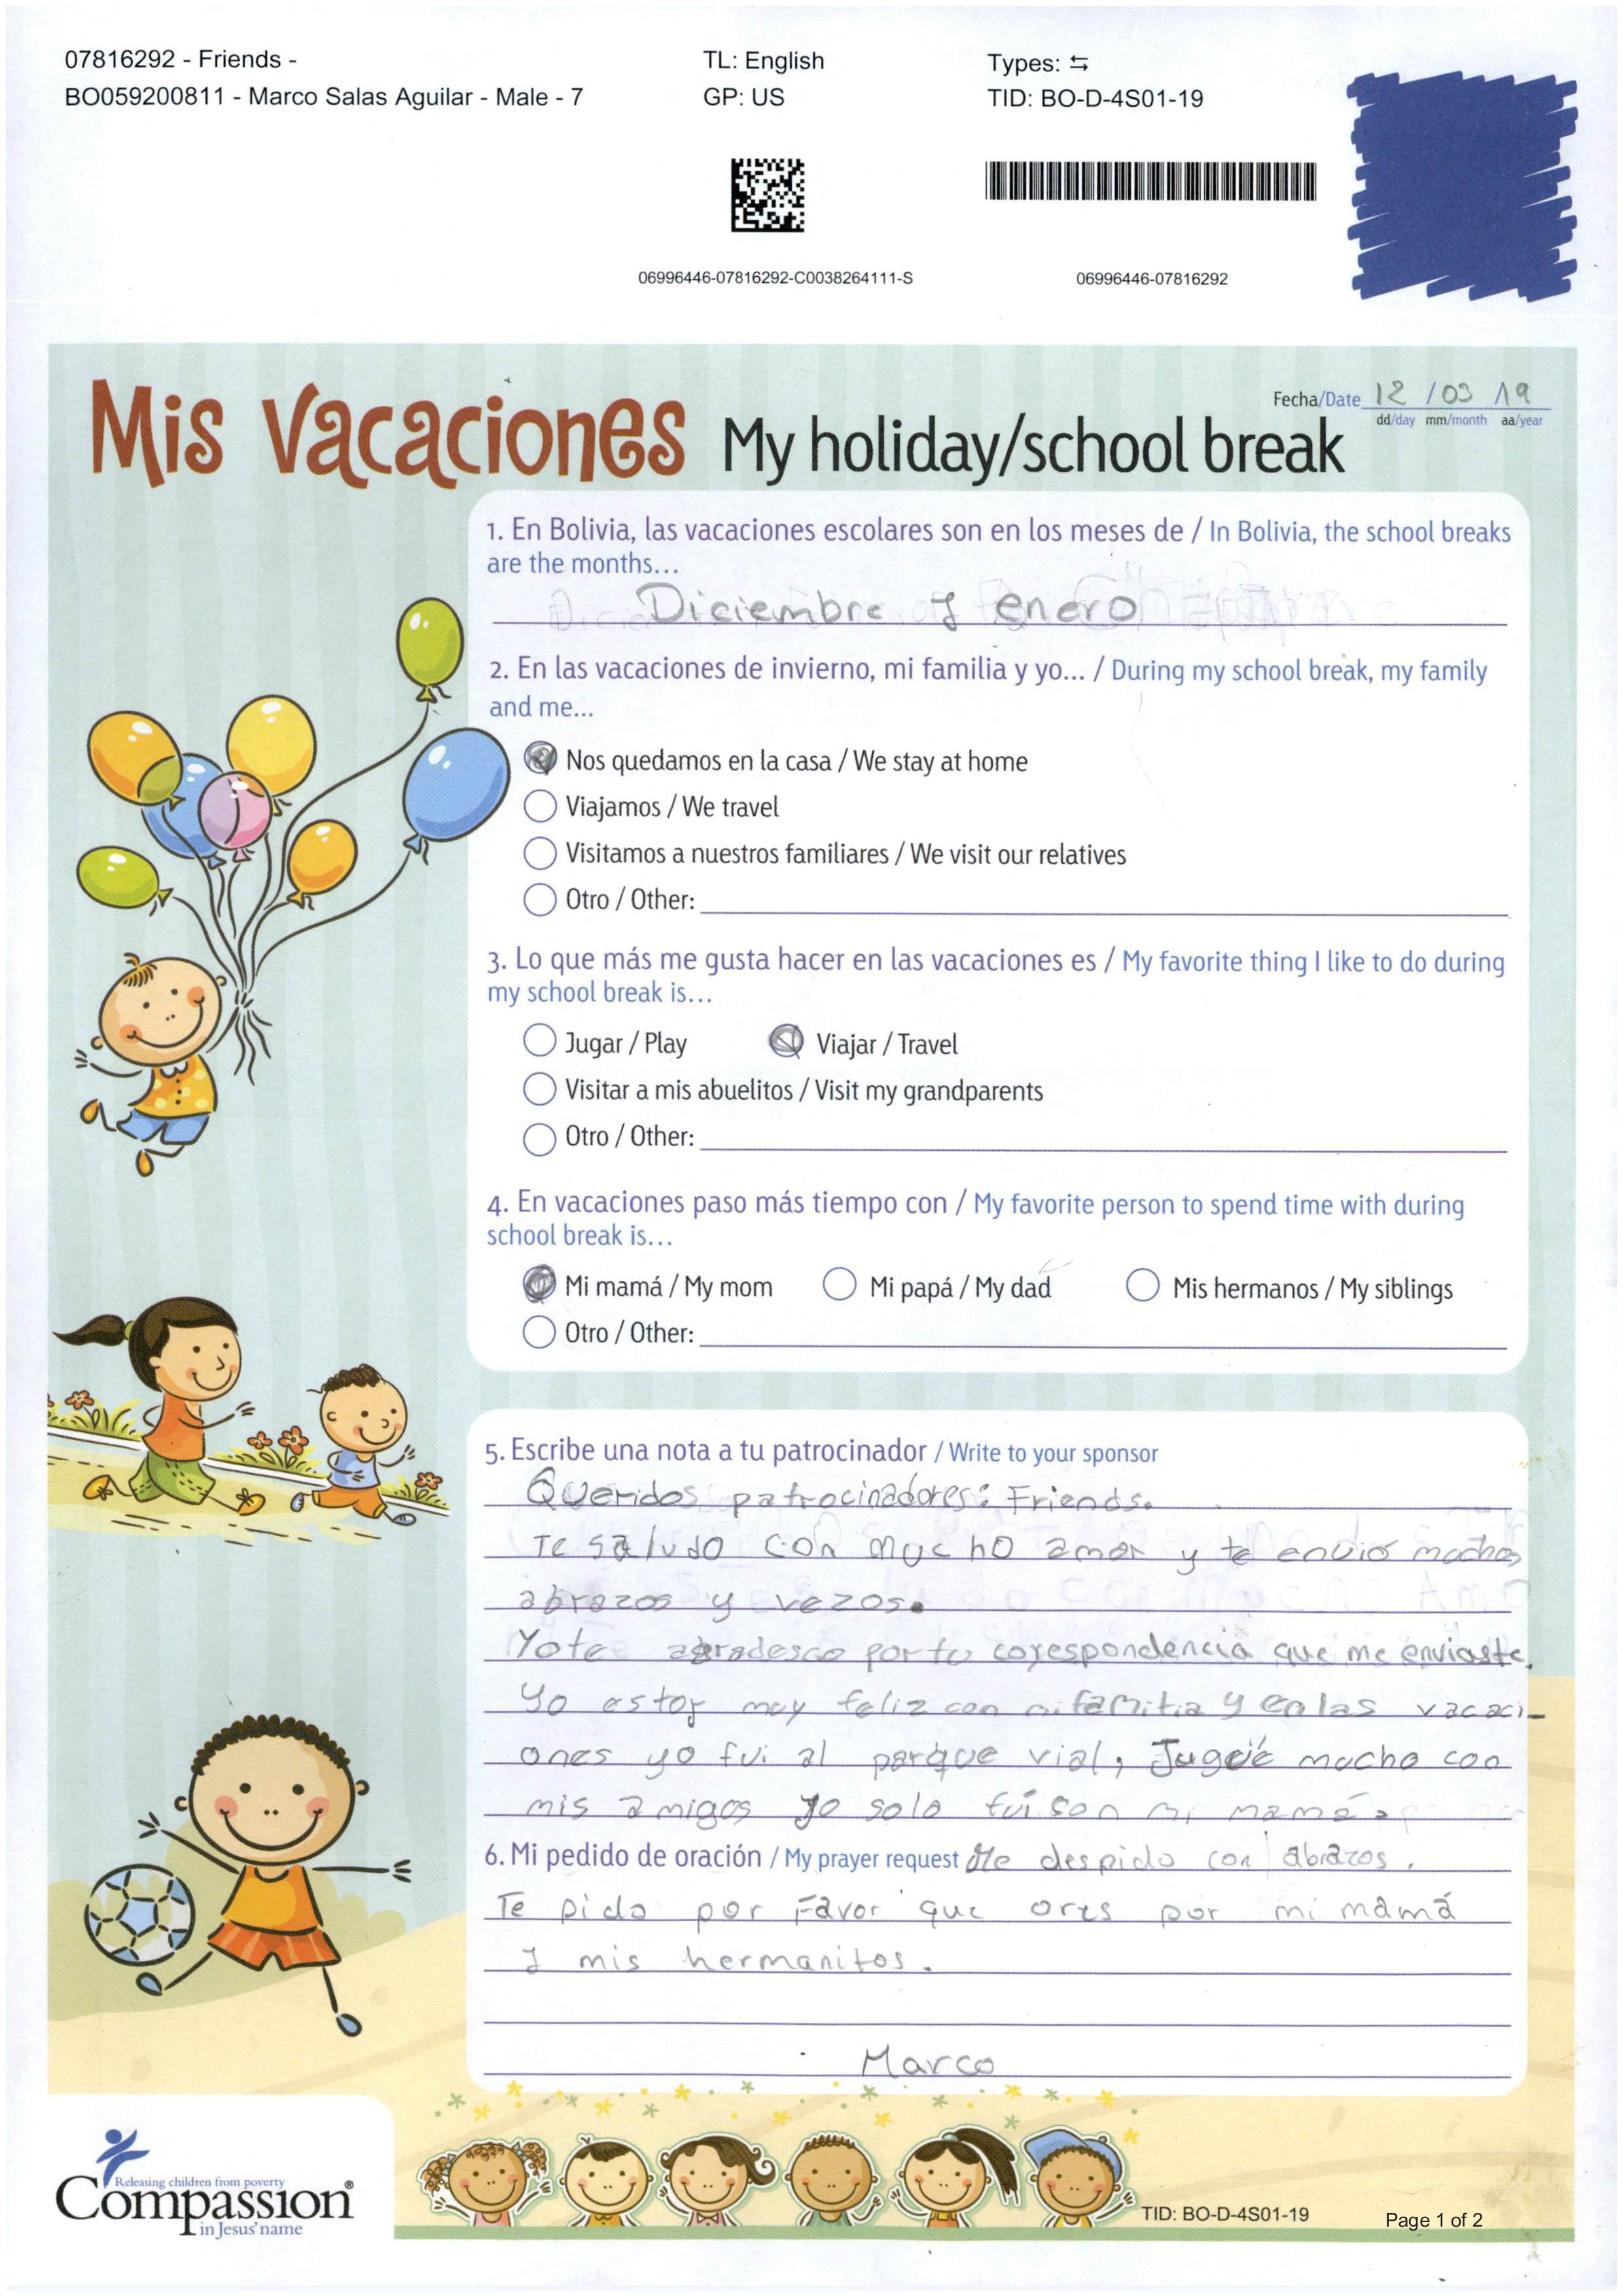 07816292 - Friends -
BO059200811 - Marco Salas Aguilar - Male - 7
TL: English
GP: US
Types: ⇆
TID: BO-D-4S01-19
06996446-07816292-C0038264111-S
06996446-07816292
Mis Vacaciones My holiday/school break
Fecha/Date 12 /03 19
dd/day mm/month aa/year
1. En Bolivia, las vacaciones escolares son en los meses de / In Bolivia, the school breaks
are the months...
Diciembre y enero
2. En las vacaciones de invierno, mi familia y yo... / During my school break, my family
and me...
Nos quedamos en la casa / We stay at home
Viajamos / We travel
Visitamos a nuestros familiares / We visit our relatives
Otro / Other:
3. Lo que más me gusta hacer en las vacaciones es / My favorite thing I like to do during
my school break is...
Jugar / Play Viajar / Travel
Visitar a mis abuelitos / Visit my grandparents
Otro / Other:
4. En vacaciones paso más tiempo con / My favorite person to spend time with during
school break is...
Mi mamá / My mom Mi papá / My dad Mis hermanos / My siblings
Otro / Other:
5. Escribe una nota a tu patrocinador / Write to your sponsor
Queridos patrocinadores: Friends.
Te saludo con mucho amor y te envio muchos
abrazos y vezos.
Yote agradesco por tu corespondencia que me enviaste.
Yo estoy muy feliz con mi familia y en las vacaci-
ones yo fui al parque vial, Jugué mucho con
mis amigos yo solo fui con mi mamá.
6. Mi pedido de oración / My prayer request Me despido con abrazos.
Te pido por Favor que ores por mi mamá
y mis hermanitos.
Marco
Releasing children from poverty
Compassion®
in Jesus' name
TID: BO-D-4S01-19
Page 1 of 2